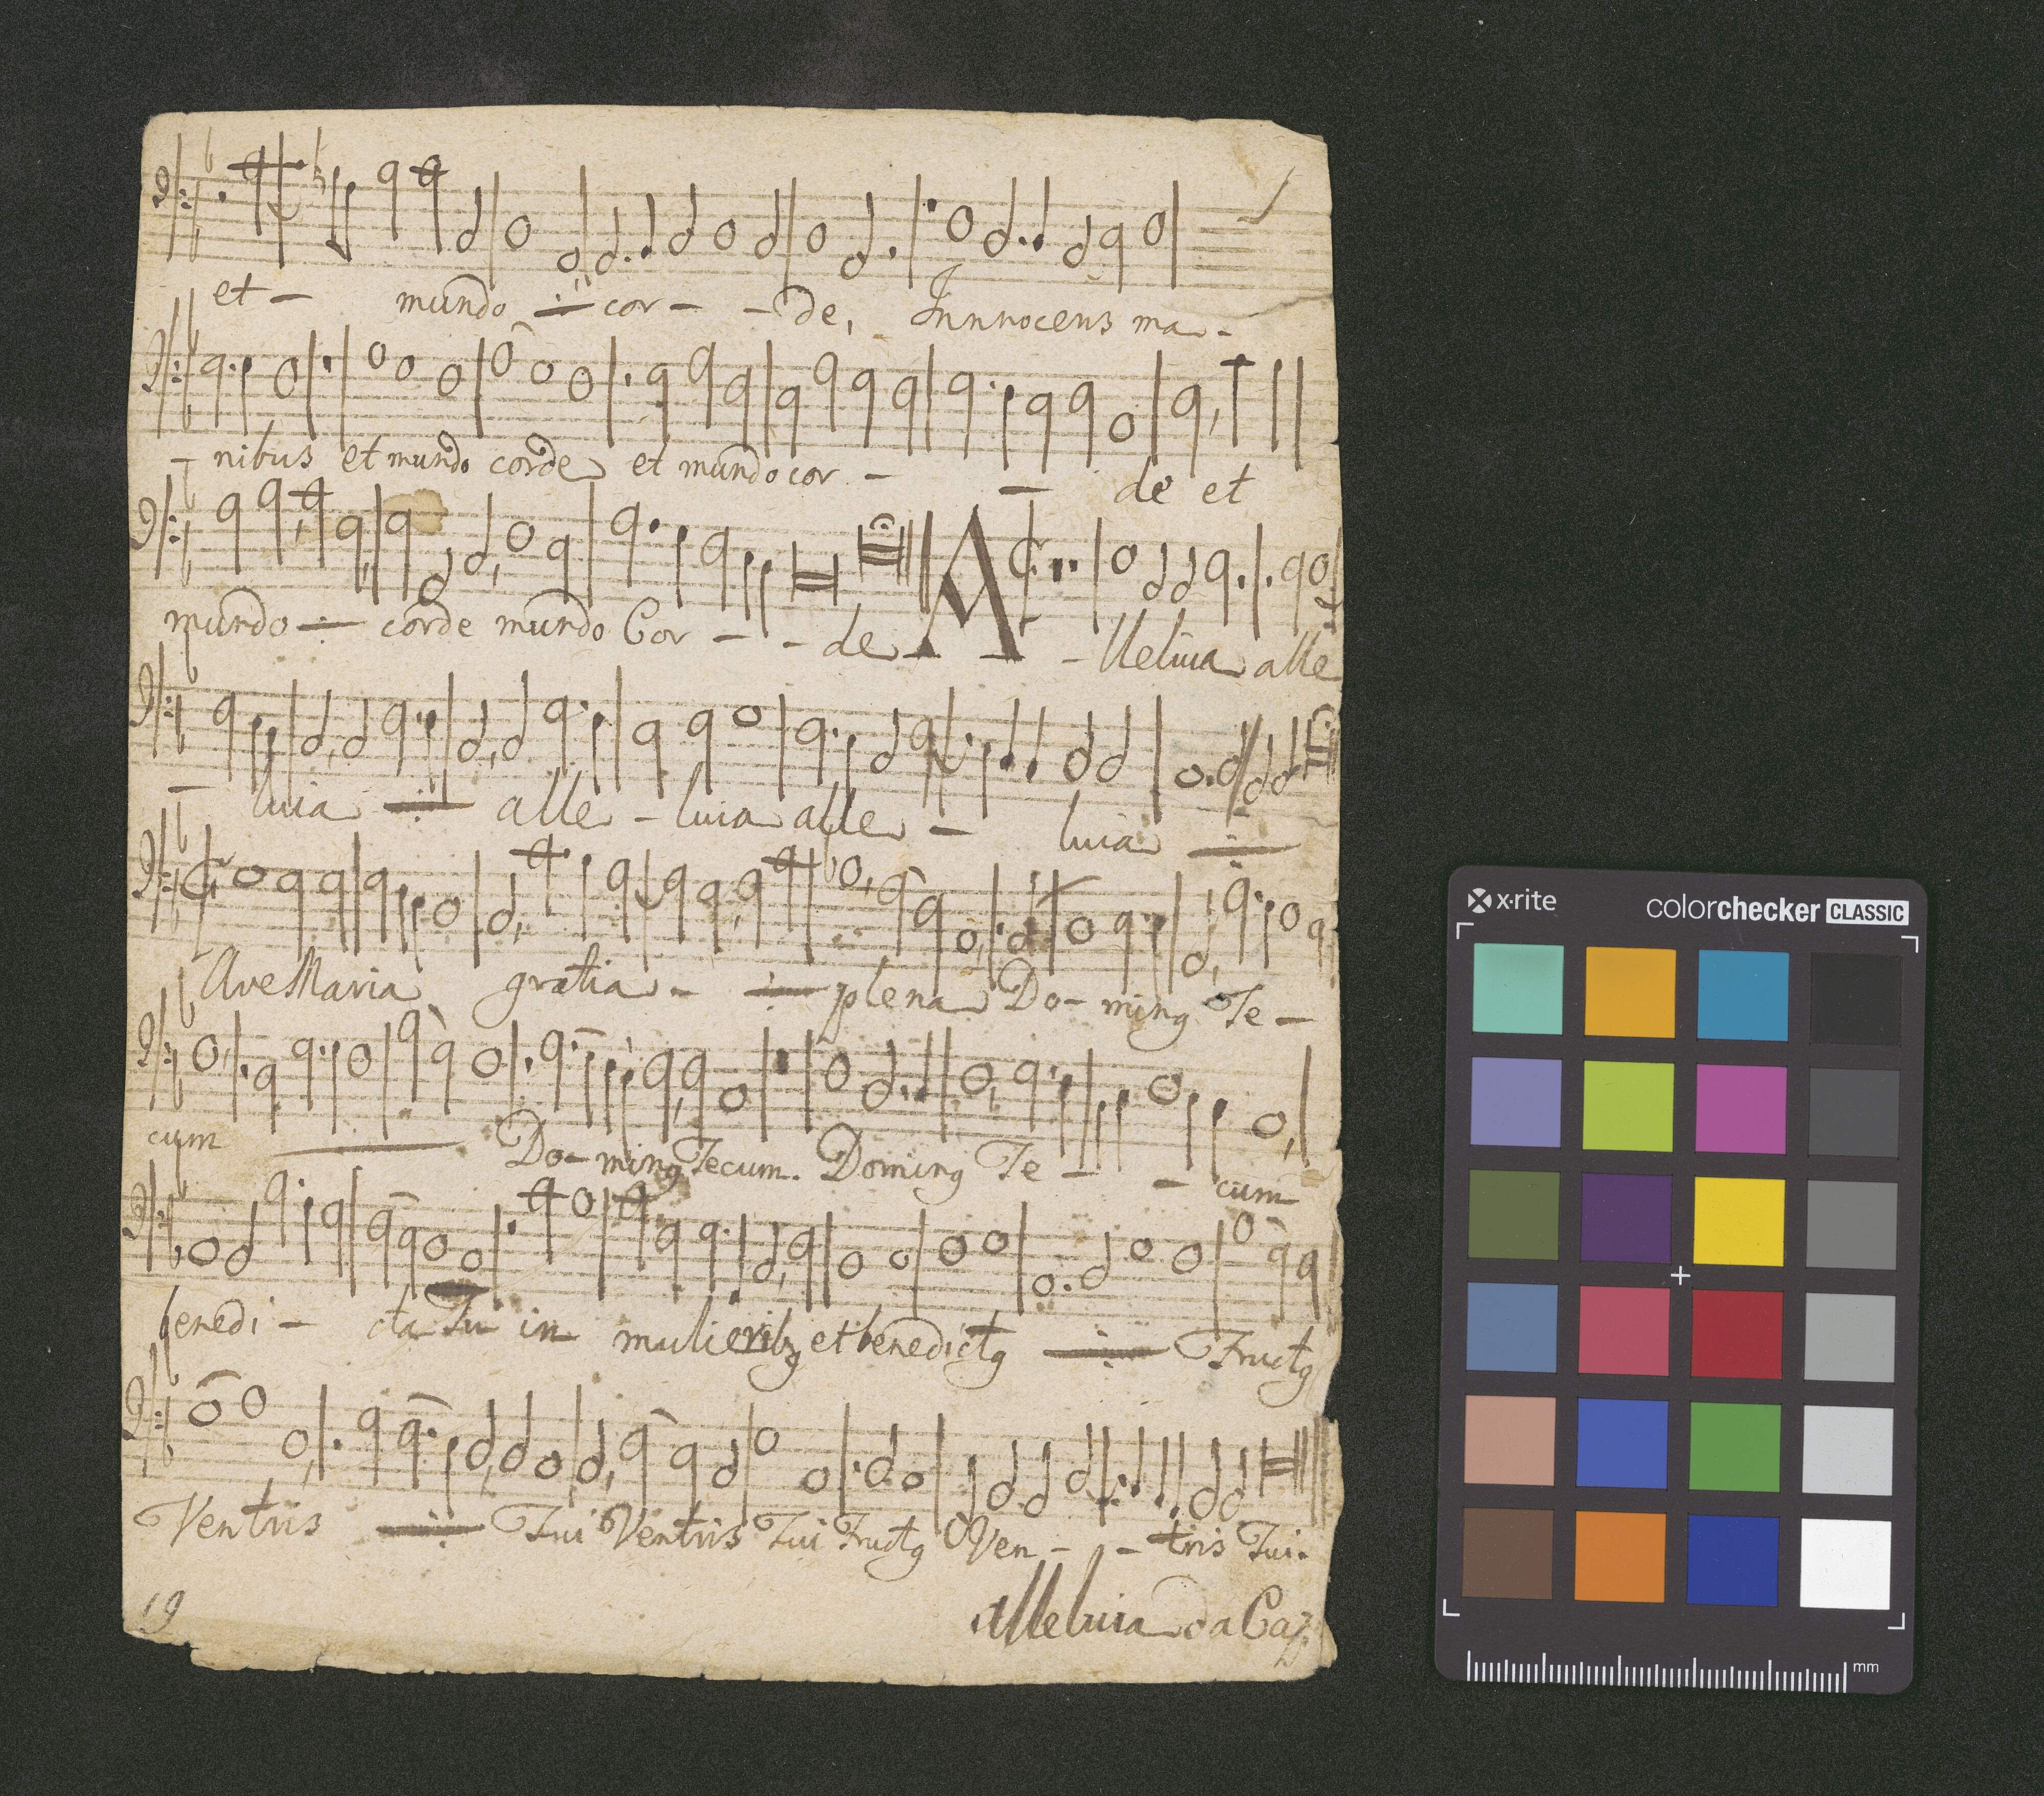 et - mundo cor - - de, Innnocens ma -
- nibus et mundo corde et mundo cor - - de et
mundo corde mundo Cor - - de A - lleluia alle
- luia alle - luia alle - luia
Ave Maria gratia - plena Do - ming Te -
cum Do - ming Tecum. Doming Te - - cum
benedi - cta Tu in mulieribz et benedictg Fructg
Ventris Tui Ventris Tui Fructg Ven - - tris Tui.
19 alleluia da Cap
x·rite colorchecker CLASSIC
mm